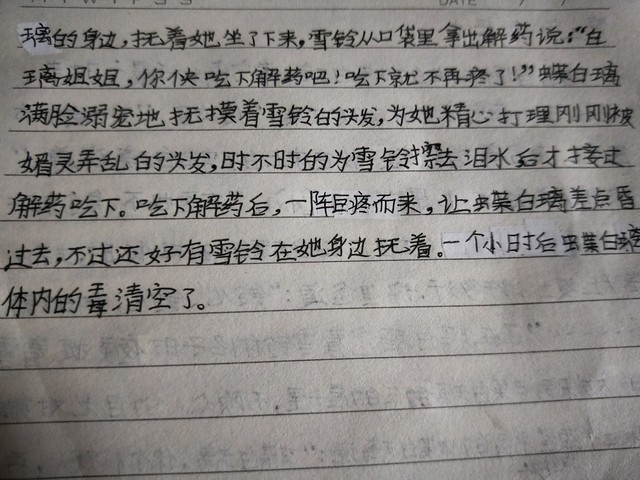 DATE
璃的身边,抚着她坐了下来,雪铃从口袋里拿出解药说:“白
璃姐姐,你快吃下解药吧!吃下就不再疼了!”蝶白璃
满脸溺宠地抚摸着雪铃的头发,为她精心打理刚刚被
婚灵弄乱的头发,时不时的为雪铃擦去泪水后才接过
解药吃下。吃下解药后,一阵巨疼而来,让蝶白璃差点昏
过去,不过还好有雪铃在她身边抚着。一个小时后蝶白璃
体内的毒清空了。